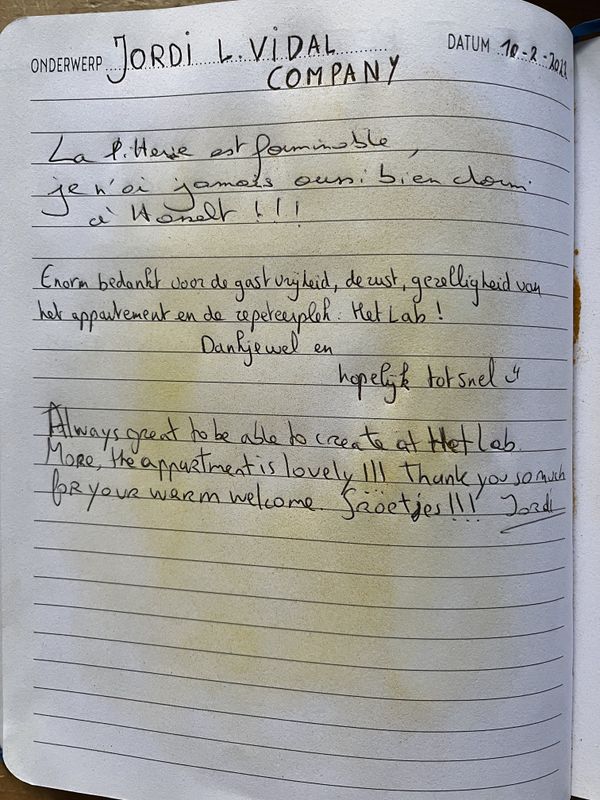 ONDERWERP JORDI L. VIDAL
COMPANY
DATUM 10-2-2022
La est formidable,
je n'ai jamais aussi bien dormi
à Hasselt !!!
Enorm bedankt voor de gastvrijheid, de rust, gezelligheid van
het appartement en de repeteerplek: Het Lab!
Dankjewel en
hopelijk tot snel
Always great to be able to create at Het Lab.
More, the appartment is lovely!!! Thank you so much
for your warm welcome. Groetjes!!! Jordi